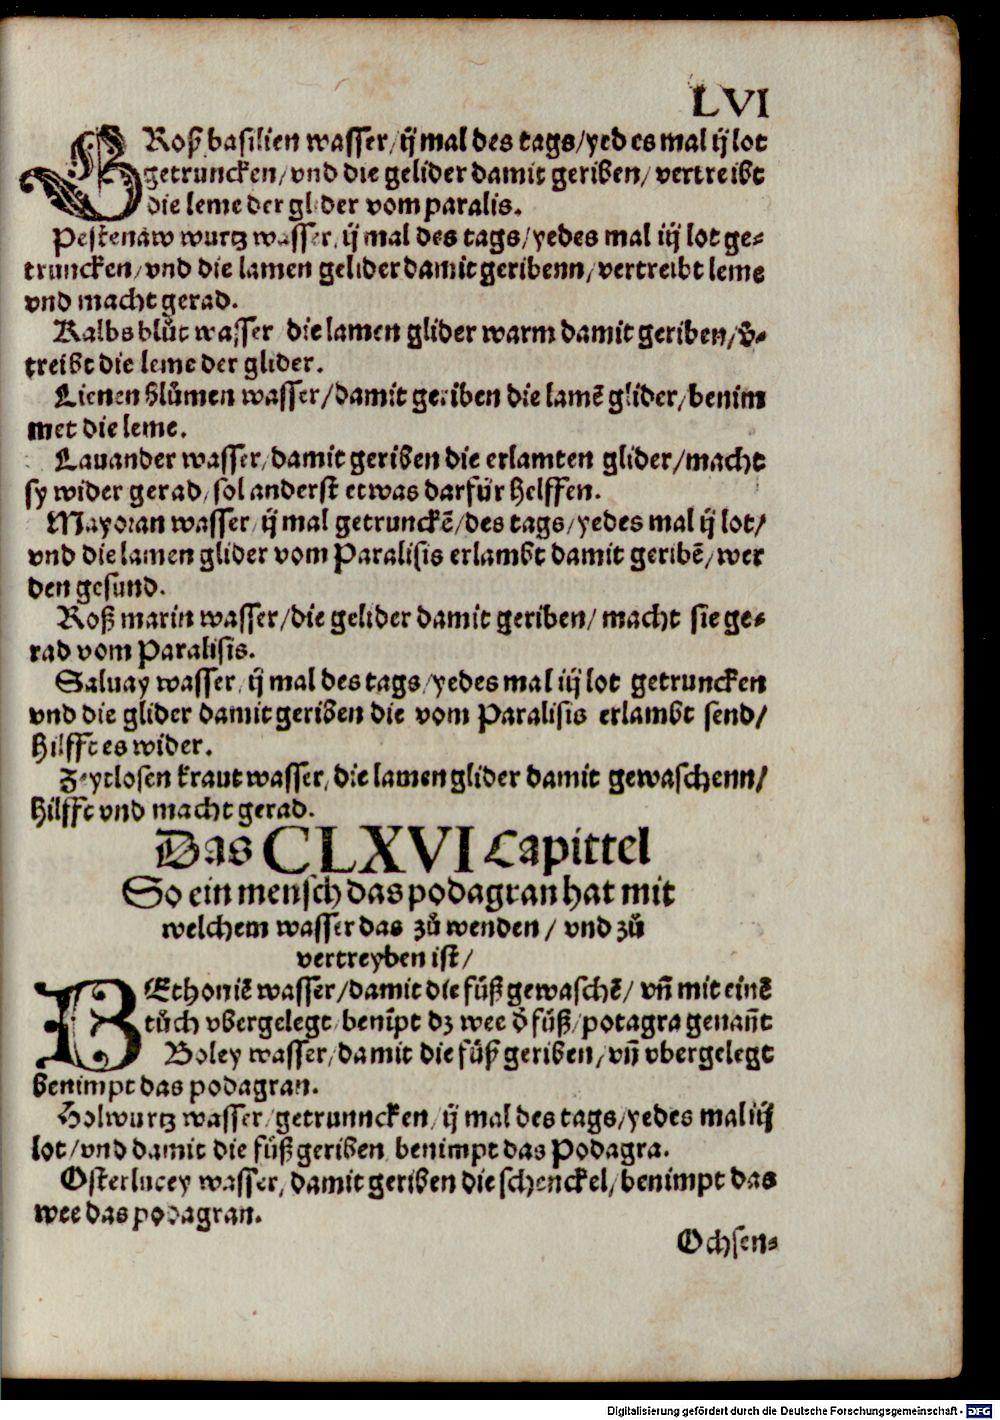 LVI
GRoß basilien wasser/ ij mal des tags/ yedes mal ij lot
getruncken/ vnd die gelider damit geriben/ vertreibt
die leme der glider vom paralis.
Pestenaw wurtz wasser, ij mal des tags/ yedes mal iij lot ge⸗
truncken/ vnd die lamen gelider damit geribenn/ vertreibt leme
vnd macht gerad.
Kalbs blůt wasser die lamen glider warm damit geriben/ v̄⸗
treibt die leme der glider.
Lienen blůmen wasser/ damit geriben die lamē glider/ benim
met die leme.
Lauander wasser/ damit geriben die erlamten glider/ macht
sy wider gerad/ sol anderst etwas darfür helffen.
Mayoran wasser/ ij mal getrunckē/ des tags/ yedes mal ij lot/
vnd die lamen glider vom Paralisis erlambt damit geribē/ wer
den gesund.
Roß marin wasser/ die gelider damit geriben/ macht sie ge⸗
rad vom Paralisis.
Saluay wasser/ ij mal des tags/ yedes mal iij lot getruncken
vnd die glider damit geriben die vom Paralisis erlambt send/
hilfft es wider.
Zeytlosen kraut wasser, die lamen glider damit gewaschenn/
hilfft vnd macht gerad.
Das CLXVI Capittel
So ein mensch das podagran hat mit
welchem wasser das zů wenden/ vnd zů
vertreyben ist/
BEthoniē wasser/ damit die fůß gewaschē/ vñ mit einē
tůch vbergelegt/ benīpt dz wee d̄ fůß/ potagra genañt
Boley wasser/ damit die fůß geriben/ vñ vbergelegt
benimpt das podagran.
Holwurtz wasser/ getrunncken/ ij mal des tags/ yedes mal iij
lot/ vnd damit die fůß geriben/ benimpt das Podagra.
Osterlucey wasser, damit geriben die schenckel/ benimpt das
wee das podagran.
Ochsen⸗
Digitalisierung gefördert durch die Deutsche Forschungsgemeinschaft - DFG